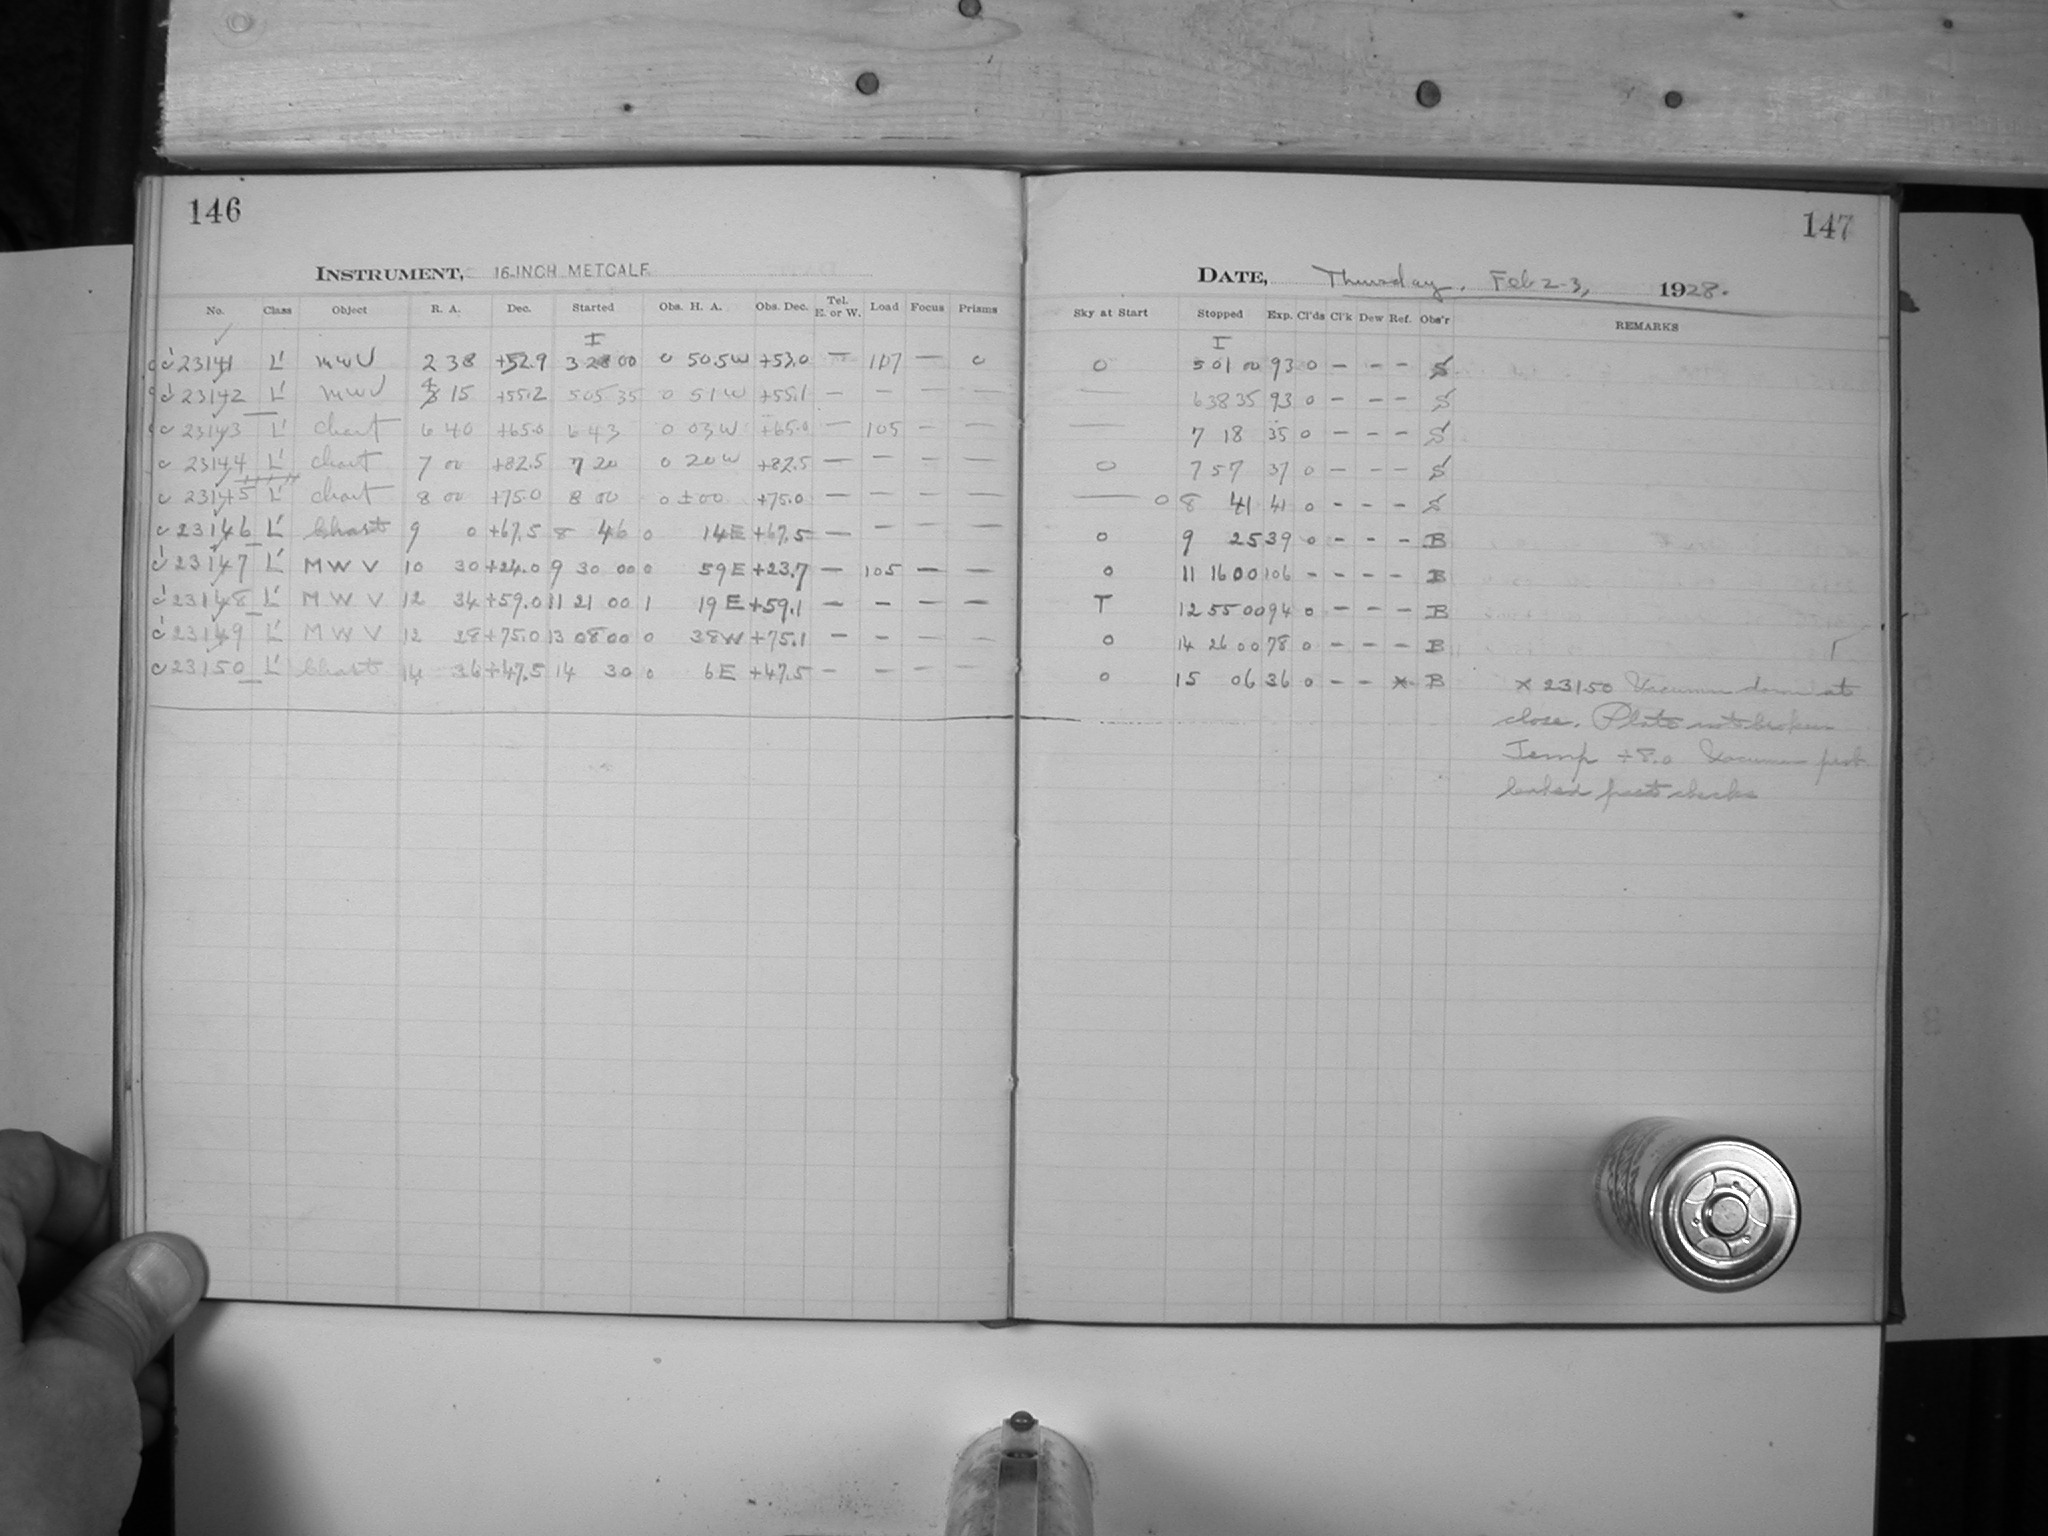 146
147
INSTRUMENT, 16-INCH METCALF
DATE, Thursday, Feb 2-3, 1928.
No. Class Object R. A. Dec. Started Obs. H. A. Obs. Dec. Tel. E. or W. Load Focus Prisms Sky at Start Stopped Exp. Cl'ds Cl'k Dew Ref. Obs'r REMARKS
I I
c 23141 L' MWV 2 38 +52.9 3 28 00 0 50.5W +53.0 — 107 — 0 0 5 01 00 93 0 – – – S
c 23142 L' MWV 4 15 +55.2 5 05 35 0 51W +55.1 — — — — — 6 38 35 93 0 – – – S
c 23143 L' chart 6 40 +65.0 6 43 0 03W +65.0 — 105 — — — 7 18 35 0 – – – S
c 23144 L' chart 7 00 +82.5 7 20 0 20W +82.5 — — — — 0 7 57 37 0 – – – S
c 23145 L' chart 8 00 +75.0 8 00 0 ±00 +75.0 — — — — — 0 8 41 41 0 – – – S
c 23146 L' Chart 9 0 +67.5 8 46 0 14E +67.5 — — — — 0 9 25 39 0 – – – B
c 23147 L' M W V 10 30 +24.0 9 30 00 0 59E +23.7 — 105 — — 0 11 16 00 106 – – – – B
c 23148 L' M W V 12 34 +59.0 11 21 00 1 19E +59.1 — — — — T 12 55 00 94 0 – – – B
c 23149 L' M W V 12 28 +75.0 13 08 00 0 38W +75.1 — — — — 0 14 26 00 78 0 – – – B
c 23150 L' Chart 14 36 +47.5 14 30 0 6E +47.5 — — — — 0 15 06 36 0 – – x B x 23150 Vacuum down at
close. Plate not broken
Temp +8.0 Vacuum prob.
leaked past